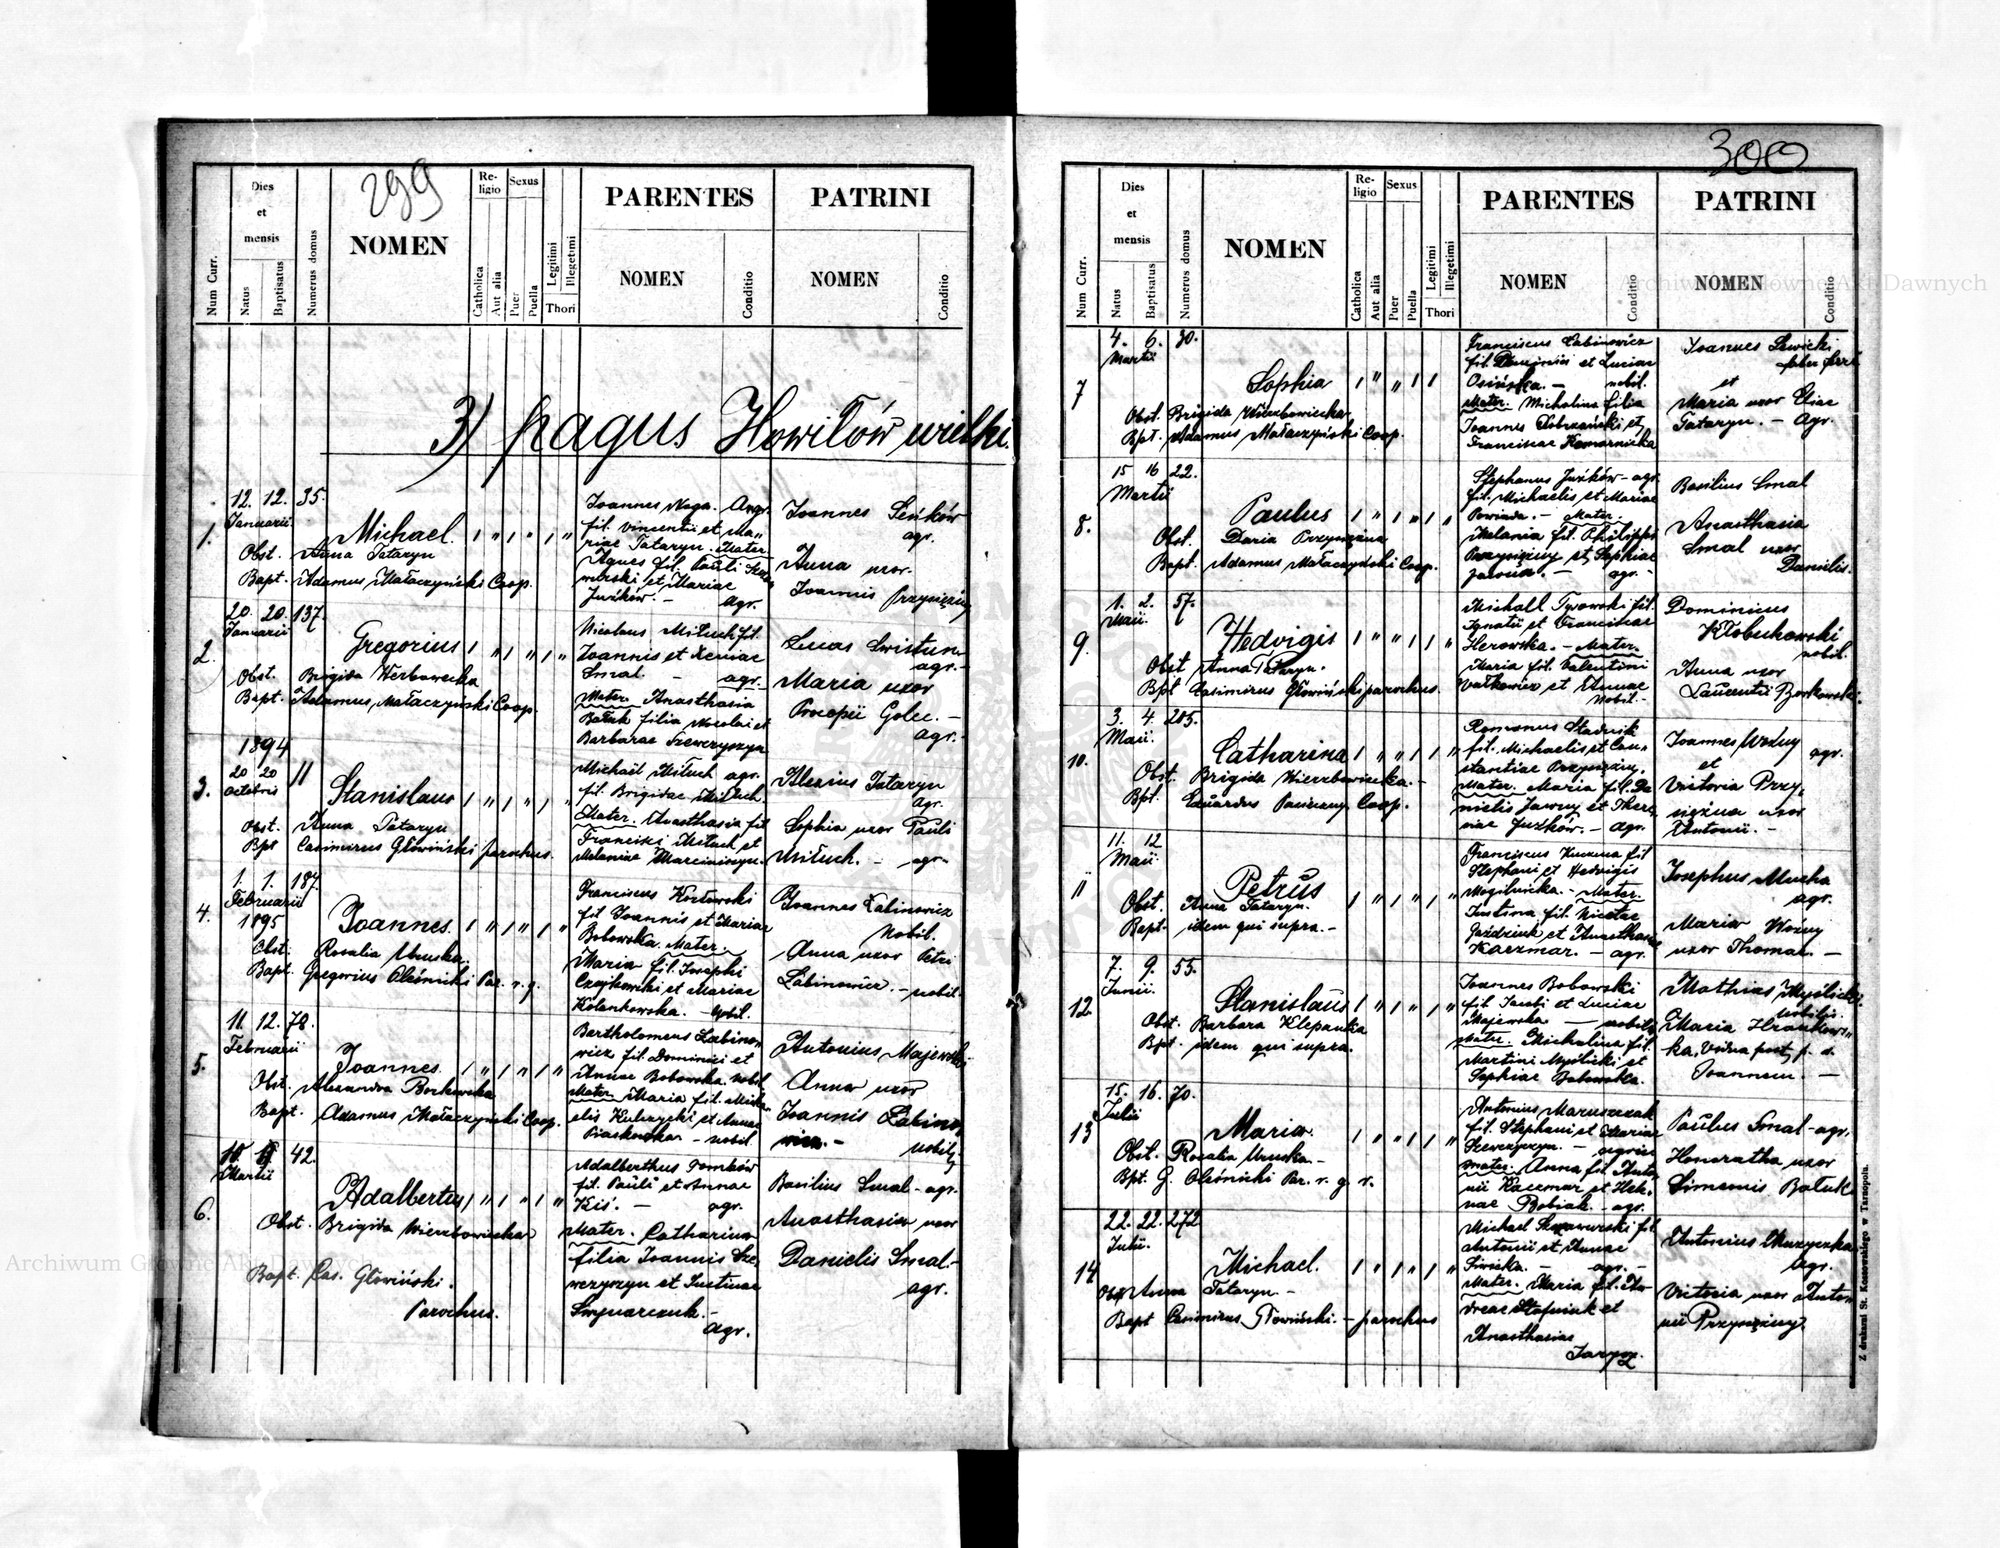 299
Num Curr.
Dies et mensis
Natus
Baptisatus
Numerus domus
NOMEN
Religio
Catholica
Aut alia
Sexus
Puer
Puella
Legitimi
Illegetimi
Thori
PARENTES
NOMEN
Conditio
PATRINI
NOMEN
Conditio
3) pagus Howiłów wielki.
1.
12. 12. 35.
Januarii
Michael.
Obst. Anna Tataryn
Bapt. Adamus Małaczyński Coop.
Joannes Naga. Agr.
fil. Vincentii et Ma„
riae Tataryn. Mater
Agnes fil. Pauli
et Mariae
Juźków. — Agr.
Joannes Seńków
agr.
Anna uxor
Joannis Przysiężny
2.
20. 20. 137.
Januarii
Gregorius
Obst. Brigida Werbowecka
Bapt. Adamus Małaczyński Coop.
Nicolaus Mituch fil.
Joannis et Xeniae
Smal. — agr.
Mater Anasthasia
Bałuk filia Nicolai et
Barbarae Szewczyszyn
Lucas Swistun
agr.
Maria uxor
Procopii Golec. —
agr.
3.
1894
20 20 11
Octobris
Stanislaus
Obst. Anna Tataryn
Bpt Casimirus Głowiński parochus.
Michaël Mituch agr.
fil. Brigidae Mituch
Mater. Anasthasia fil
Francisci Mituch et
Melaniae Marciniszyn.
Alexius Tataryn
Agr.
Sophia uxor Pauli
Mituch. — agr.
4.
1. 1. 187.
Februarii
1895
Joannes.
Obst. Rosalia Uruska.
Bapt. Gregorius Oleśnicki Par. r. g.
Franciscus Kozłowski
fil Joannis et Mariae
Bobowska. Mater.
Maria fil. Josephi
Czajkowski et Mariae
Kolankowska. — Nobil.
Joannes Łabinowicz
Nobil.
Anna uxor Petri
Łabinowicz. — nobil.
5.
11. 12. 78.
Februarii
Joannes.
Obst. Alexandra Borkowska
Bapt. Adamus Małaczyński Coop.
Bartholomeus Łabino„
wicz fil. Dominici et
Annae Bobowska. nobil
Mater Maria fil. Micha„
elis Kulczycki et Annae
Piaskowska — nobil
Antonius Majewski
Anna uxor
Joannis Łabino„
wicz. — nobil.
6.
42.
Martii
Adalbertus
Obst. Brigida Wierzbowiecka
Bapt. Cas. Głowiński.
Parochus.
Adalberthus Dombów
fil. Pauli et Annae
Kiś. — agr.
Mater. Catharina
filia Joannis Sze„
wczyszyn et Justinae
Smynarczuk. —
Agr.
Basilius Smal - agr.
Anasthasia uxor
Danielis Smal. -
agr.
300
Num Curr.
Dies et mensis
Natus
Baptisatus
Numerus domus
NOMEN
Religio
Catholica
Aut alia
Sexus
Puer
Puella
Legitimi
Illegetimi
Thori
PARENTES
NOMEN
Conditio
PATRINI
NOMEN
Conditio
7
4. 6. 30.
Martii
Sophia
Obst. Brigida Wierzbowiecka
Bpt. Adamus Małaczyński Coop.
Franciscus Łabinowicz
fil. Dominici et Luciae
Osińska. — nobil.
Mater. Michalina filia
Joannes Dobrzański et
Franciscae Komarnicka
Joannes Lewicki
faber ferr.
et
Maria uxor Eliae
Tataryn. — Agr.
8.
15 16 22.
Martii
Paulus
Obst. Daria Przysiężna
Bapt. Adamus Małaczyński Coop.
Stephanus Juźków - agr.
fil. Michaelis et Mariae
Mater.
Melania fil. Philippi
Przysiężny et Sophiae
Jawna. — agr. -
Basilius Smal
Anasthasia
Smal uxor
Danielis.
9.
1. 2. 57.
Maii.
Hedvigis
Obst Anna Tataryn.
Bpt Casimirus Głowiński parochus.
Michaël Tyrowski fil.
Ignatii et Franciscae
Herowska. — Mater
Maria fil. Valentini
Wałkowicz et Annae
Nobil. -
Dominicus
Kłobukowski
nobil.
Anna uxor
Laurentii Borkowski.
10.
3. 4. 205.
Maii.
Catharina
Obst. Brigida Wierzbowiecka. -
Bpt. Eduardus Coop.
Romanus Stadnik
fil. Michaelis et Con„
stantiae Przysiężny.
Mater Maria fil. Da„
nielis Jawny et There„
siae Juźków. — Agr.
Joannes Woźny agr.
et
Victoria Przy„
siężna uxor
Antonii. —
11
11. 12
Maii.
Petrus
Obst. Anna Tataryn.
Bapt. idem qui supra. —
Franciscus Kuczma fil
Stephani et Hedvigis
Mogilnicka. — Mater.
Justina fil. Nicetae
Jaździuk et Anasthasiae
Kaczmar. — agr.
Josephus Mucha
agr.
Maria Woźny
uxor Thomae. —
12.
7. 9. 55.
Junii.
Stanislaus
Obst. Barbara Klepanka
Bpt. idem qui supra.
Joannes Bobowski
fil Jacobi et Luciae
Majewska — nobilis
Mater. Michalina fil.
Martini Myślicki et
Sophiae Bobowska.
Mathias Myślicki
Nobilis.
Maria
ka, Vidua post p. d.
Joannem. —
13
15. 16. 70.
Julii
Maria.
Obst. Rosalia Uruska. —
Bpt. G. Oleśnicki Par. r. g. r.
Antonius Maruszczak
fil. Stephani et Mariae
Szewczyszyn. — agric
Mater. Anna fil. Anto„
nii Kaczmar et Hele„
nae Robiak. — agr.
Paulus Smal - agr.
Honoratha uxor
Simeonis Bałuk
14
22. 22. 272
Julii.
Michael.
Obst Anna Tataryn —
Bapt Casimirus Głowiński. — parochus
Michael fil
Antonii et Annae
Siwicka. — agr. —
Mater. Maria fil. An„
dreae Stefaniuk et
Anasthasiae
Jarysz.
Antonius Muzyczka
Agr.
Victoria uxor Anto„
nii Przysiężny.
Z drukarni St. Kossowskiego w Tarnopolu.
Archiwum Główne Akt Dawnych
Archiwum Główne Akt Dawnych